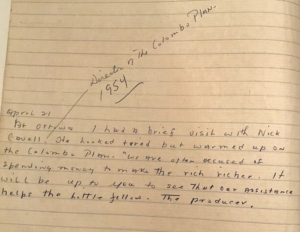 Director of the Colombo Plan.
1954
April 21
At Ottawa I had a brief visit with Nick
Cavell who looked tired but warmed up on
the Colombo Plan. "We are often accused of
spending money to make the rich richer. It
will be up to you to see that our assistance
helps the little fellow. The producer.